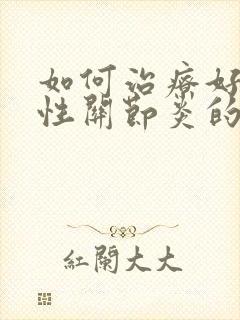 如何治療好
性關節炎的
紅蘭大大